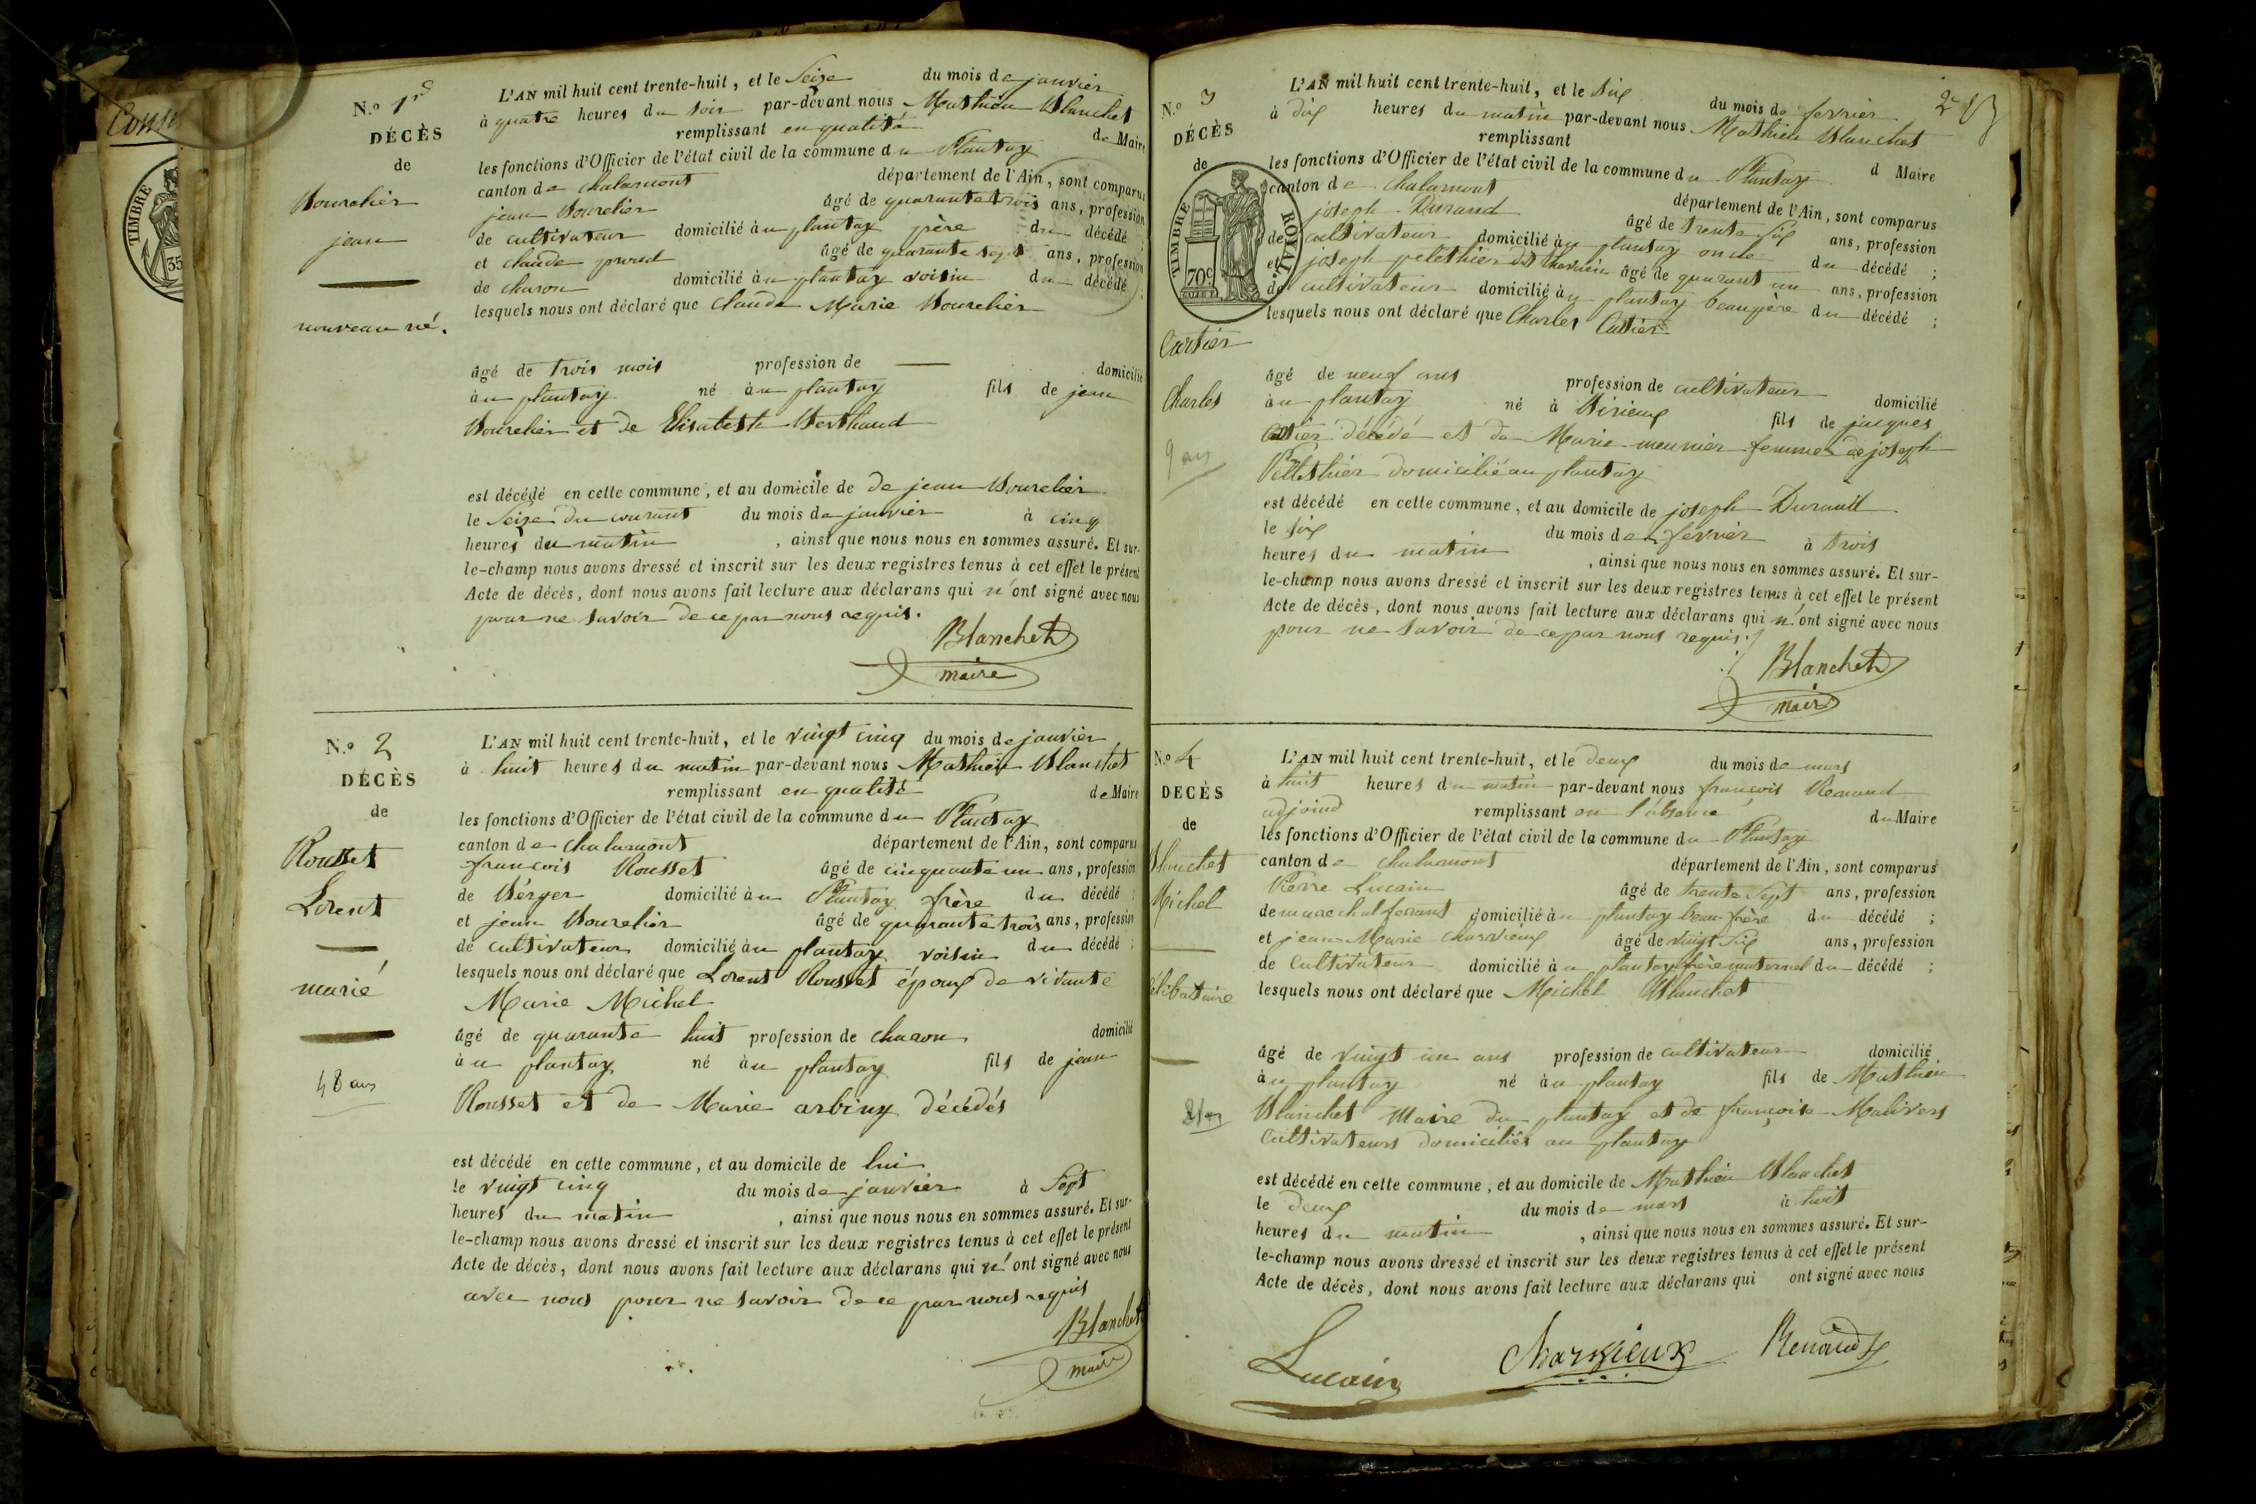 Conse
TIMBRE
35
N.o 1r
DÉCÈS
de
Bourelier
jean
nouveau né.
L'AN mil huit cent trente-huit, et le Seize du mois de janvier
à quatre heures du soir par-devant nous Mathieu Blanchet
remplissant en qualité de Maire
les fonctions d'Officier de l'état civil de la commune du Plantay
canton de chalamont département de l'Ain, sont comparus
jean Bourelier âgé de quarante trois ans, profession
de cultivateur domicilié àu plantay père du décédé ;
et claude proud âgé de quarante sept ans, profession
de charon domicilié àu plantay voisin du décédé ;
lesquels nous ont déclaré que claude Marie Bourelier
âgé de trois mois profession de — domicilié
àu plantay né àu plantay fils de jean
Bourelier et de Elisabeth Berthaud
est décédé en cette commune, et au domicile de de jean Bourelier
le Seize du courant du mois de janvier à cinq
heures du matin , ainsi que nous nous en sommes assuré. Et sur-
le-champ nous avons dressé et inscrit sur les deux registres tenus à cet effet le présent
Acte de décès, dont nous avons fait lecture aux déclarans qui n'ont signé avec nous
pour ne savoir de ce par nous requis.
Blanchet
maire
N.o 2
DÉCÈS
de
Rousset
Lorent
marié
48 ans
L'AN mil huit cent trente-huit, et le vingt cinq du mois de janvier
à huit heures du matin par-devant nous Mathieu Blanchet
remplissant en qualité de Maire
les fonctions d'Officier de l'état civil de la commune du Plantay
canton de chalamont département de l'Ain, sont comparus
françois Rousset âgé de cinquante un ans, profession
de Bérger domicilié àu Plantay frère du décédé ;
et jean Bourelier âgé de quarante trois ans, profession
de cultivateur domicilié àu plantay voisin du décédé ;
lesquels nous ont déclaré que Lorent Rousset époux de vivante
Marie Michel
âgé de quarante huit profession de charon domicilié
àu plantay né àu plantay fils de jean
Rousset et de Marie arbinx décédés
est décédé en cette commune, et au domicile de lui
le vingt cinq du mois de janvier à Sept
heures du matin , ainsi que nous nous en sommes assuré. Et sur-
le-champ nous avons dressé et inscrit sur les deux registres tenus à cet effet le présent
Acte de décès, dont nous avons fait lecture aux déclarans qui n'ont signé avec nous
avec nous pour ne savoir de ce par nous requis
Blanchet
maire
2e
N.o 3
DÉCÈS
de
TIMBRE ROYAL.
70c
Cartier
Charles
9 ans
L'AN mil huit cent trente-huit, et le Six du mois de fevrier
à dix heures du matin par-devant nous Mathieu Blanchet
remplissant d Maire
les fonctions d'Officier de l'état civil de la commune du Plantay
canton de chalamont département de l'Ain, sont comparus
joseph Durand âgé de trente Six ans, profession
de cultivateur domicilié àu plantay oncle du décédé ;
et joseph pelethier dit âgé de quarant un ans, profession
de cultivateur domicilié àu plantay beaupère du décédé ;
lesquels nous ont déclaré que Charles Cartier
âgé de neuf ans profession de cultivateur domicilié
àu plantay né à Birieux fils de jacques
Cartier décédé et de Marie meunier femme de joseph
Pelethier domicilié au plantay
est décédé en cette commune, et au domicile de joseph Durand
le six du mois de fevrier à trois
heures du matin , ainsi que nous nous en sommes assuré. Et sur-
le-champ nous avons dressé et inscrit sur les deux registres tenus à cet effet le présent
Acte de décès, dont nous avons fait lecture aux déclarans qui n'ont signé avec nous
pour ne savoir de ce par nous requis.
Blanchet
maire
N.o 4
DÉCÈS
de
Blanchet
Michel
célibataire
21 ans
L'AN mil huit cent trente-huit, et le deux du mois de mars
à huit heures du matin par-devant nous françois Renaud
adjoind remplissant en l'absence du Maire
les fonctions d'Officier de l'état civil de la commune du Plantay
canton de chalamont département de l'Ain, sont comparus
Pierre Lucain âgé de trente Sept ans, profession
de marechal ferant domicilié àu plantay beau-frère du décédé ;
et jean-Marie charvieux âgé de vingt Six ans, profession
de Cultivateur domicilié àu plantay frère maternel du décédé ;
lesquels nous ont déclaré que Michel Blanchet
âgé de vingt un ans profession de cultivateur domicilié
àu plantay né àu plantay fils de Mathieu
Blanchet Maire du plantay et de françoise Malivers
cultivateurs domiciliés au plantay
est décédé en cette commune, et au domicile de Mathieu Blanchet
le Deux du mois de mars à huit
heures du matin , ainsi que nous nous en sommes assuré. Et sur-
le-champ nous avons dressé et inscrit sur les deux registres tenus à cet effet le présent
Acte de décès, dont nous avons fait lecture aux déclarans qui ont signé avec nous
Lucain Charvieux Renaud